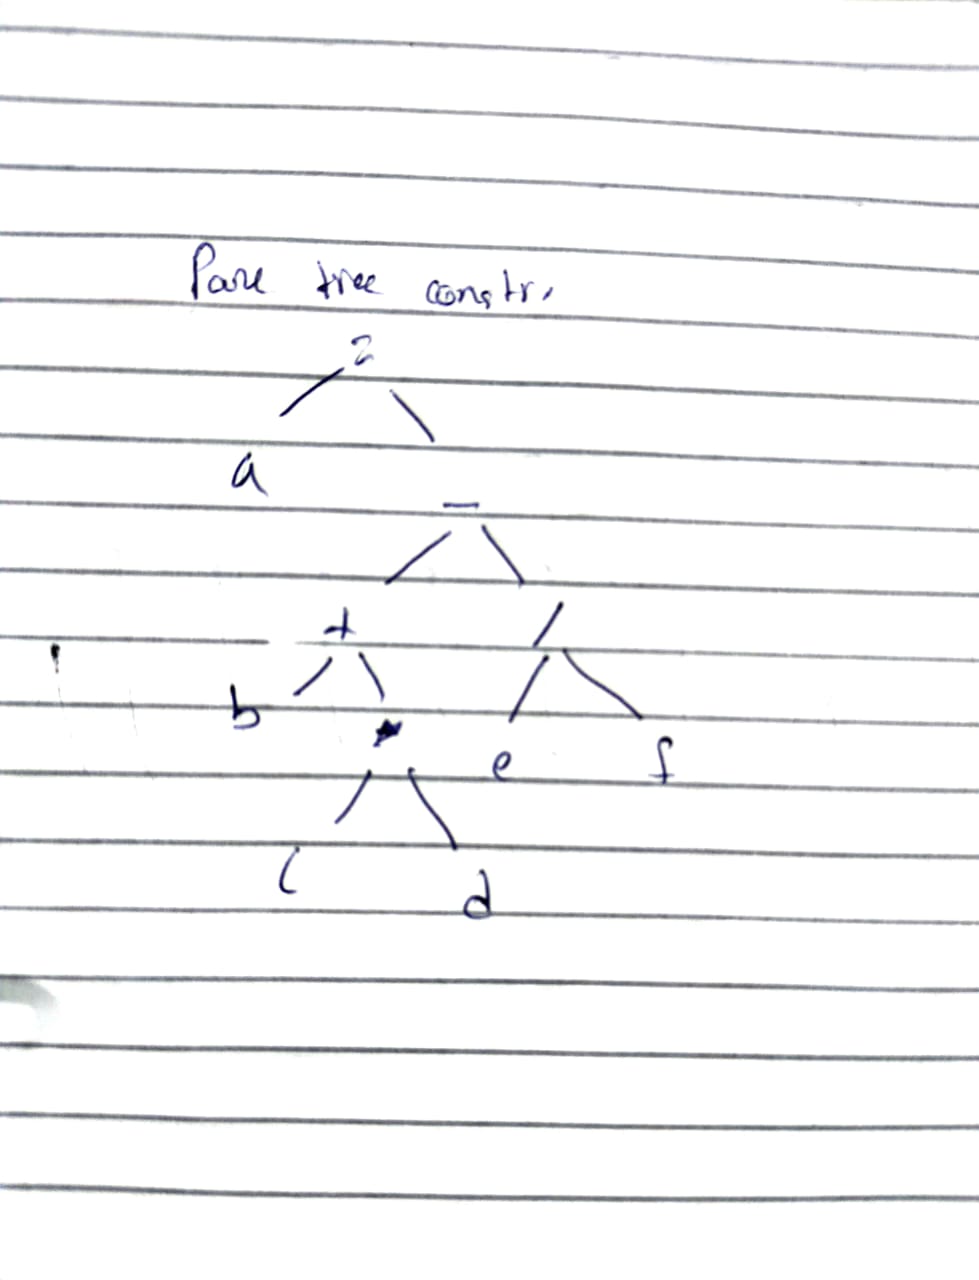 Parse tree constr.
=
a
-
+ /
b * e f
c d